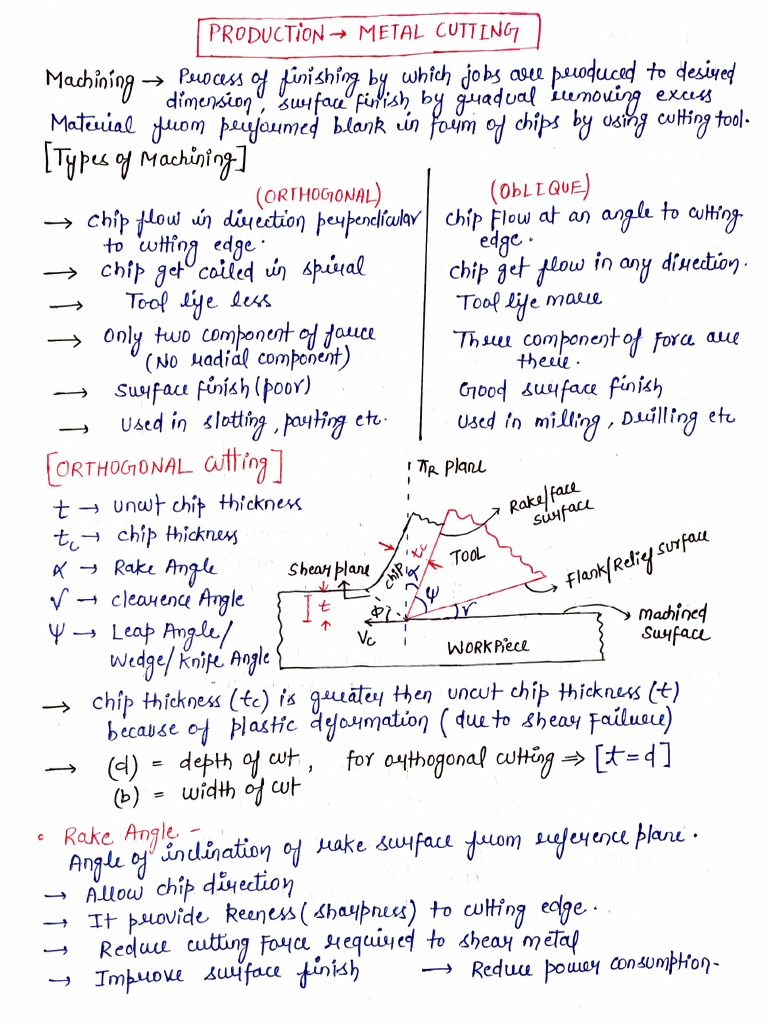 PRODUCTION → METAL CUTTING
Machining → Process of finishing by which jobs are produced to desired
dimension, surface finish by gradual removing excess
Material from preformed blank in form of chips by using cutting tool.
[Types of Machining]
(ORTHOGONAL)
→ chip flow in direction perpendicular
to cutting edge.
→ chip get coiled in spiral
→ Tool life less
→ Only two component of force
(No radial component)
→ Surface finish (poor)
→ Used in slotting, parting etc.
(OBLIQUE)
chip Flow at an angle to cutting
edge.
chip get flow in any direction.
Tool life more
Three component of Force are
there.
Good surface finish
Used in milling, Drilling etc
[ORTHOGONAL Cutting]
t → uncut chip thickness
tc → chip thickness
α → Rake Angle
γ → clearence Angle
ψ → Leap Angle/
Wedge/Knife Angle
πR plane
Rake/face
surface
Shear plane
chip
tc
α
TOOL
Flank/Relief surface
t
φ
ψ
γ
Vc
machined
surface
WORKPIECE
→ chip thickness (tc) is greater then uncut chip thickness (t)
because of plastic deformation (due to shear Failure)
→ (d) = depth of cut, for orthogonal cutting ⇒ [t = d]
(b) = width of cut
• Rake Angle -
Angle of inclination of rake surface from reference plane.
→ Allow chip direction
→ It provide keeness (sharpness) to cutting edge.
→ Reduce cutting Force required to shear metal
→ Improve surface finish → Reduce power consumption.